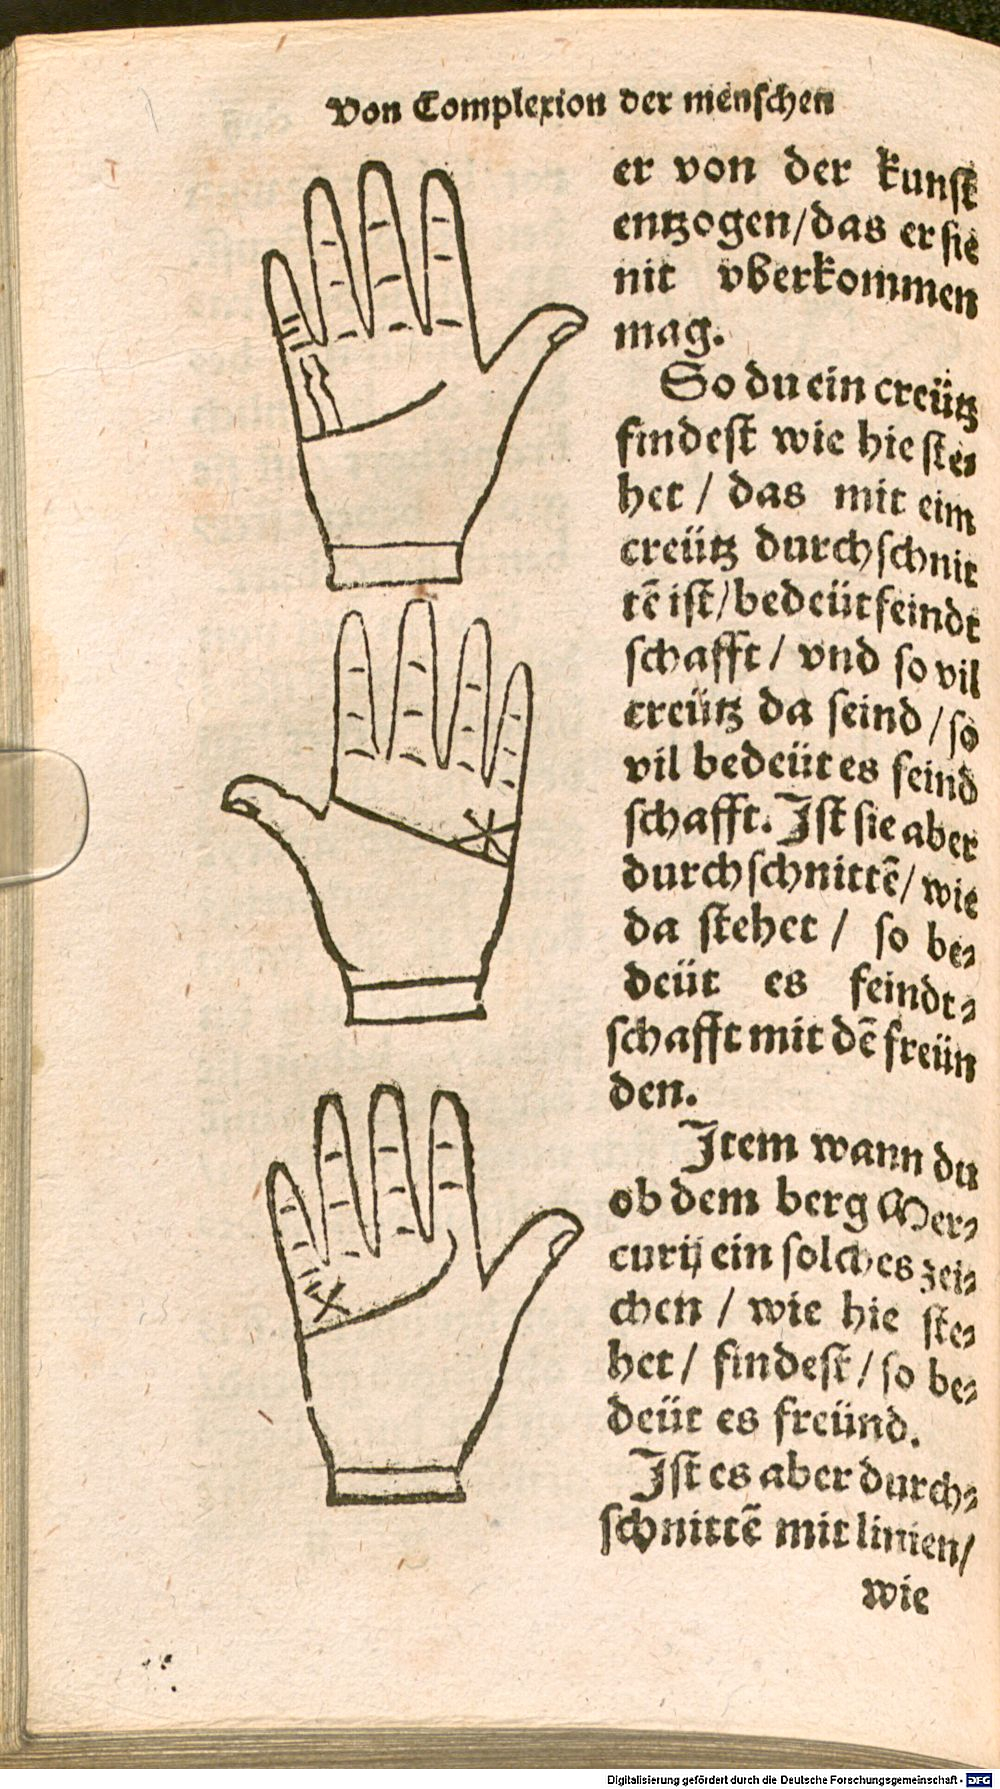 Von Complexion der menschen
er von der kunst
entzogen/das er sie
nit vberkommen
mag.
So du ein creütz
findest wie hie ste⸗
het / das mit eim
creütz durchschnit
tē ist/bedeüt feindt
schafft / vnd so vil
creütz da seind /so
vil bedeüt es feind
schafft. Ist sie aber
durchschnittē/ wie
da stehet / so be⸗
deüt es feindt⸗
schafft mit dē freün
den.
Item wann du
ob dem berg Mer⸗
curij ein solches zei⸗
chen / wie hie ste⸗
het/ findest/ so be⸗
deüt es freünd.
Ist es aber durch⸗
schnittē mit linien/
wie
Digitalisierung gefördert durch die Deutsche Forschungsgemeinschaft - DFG